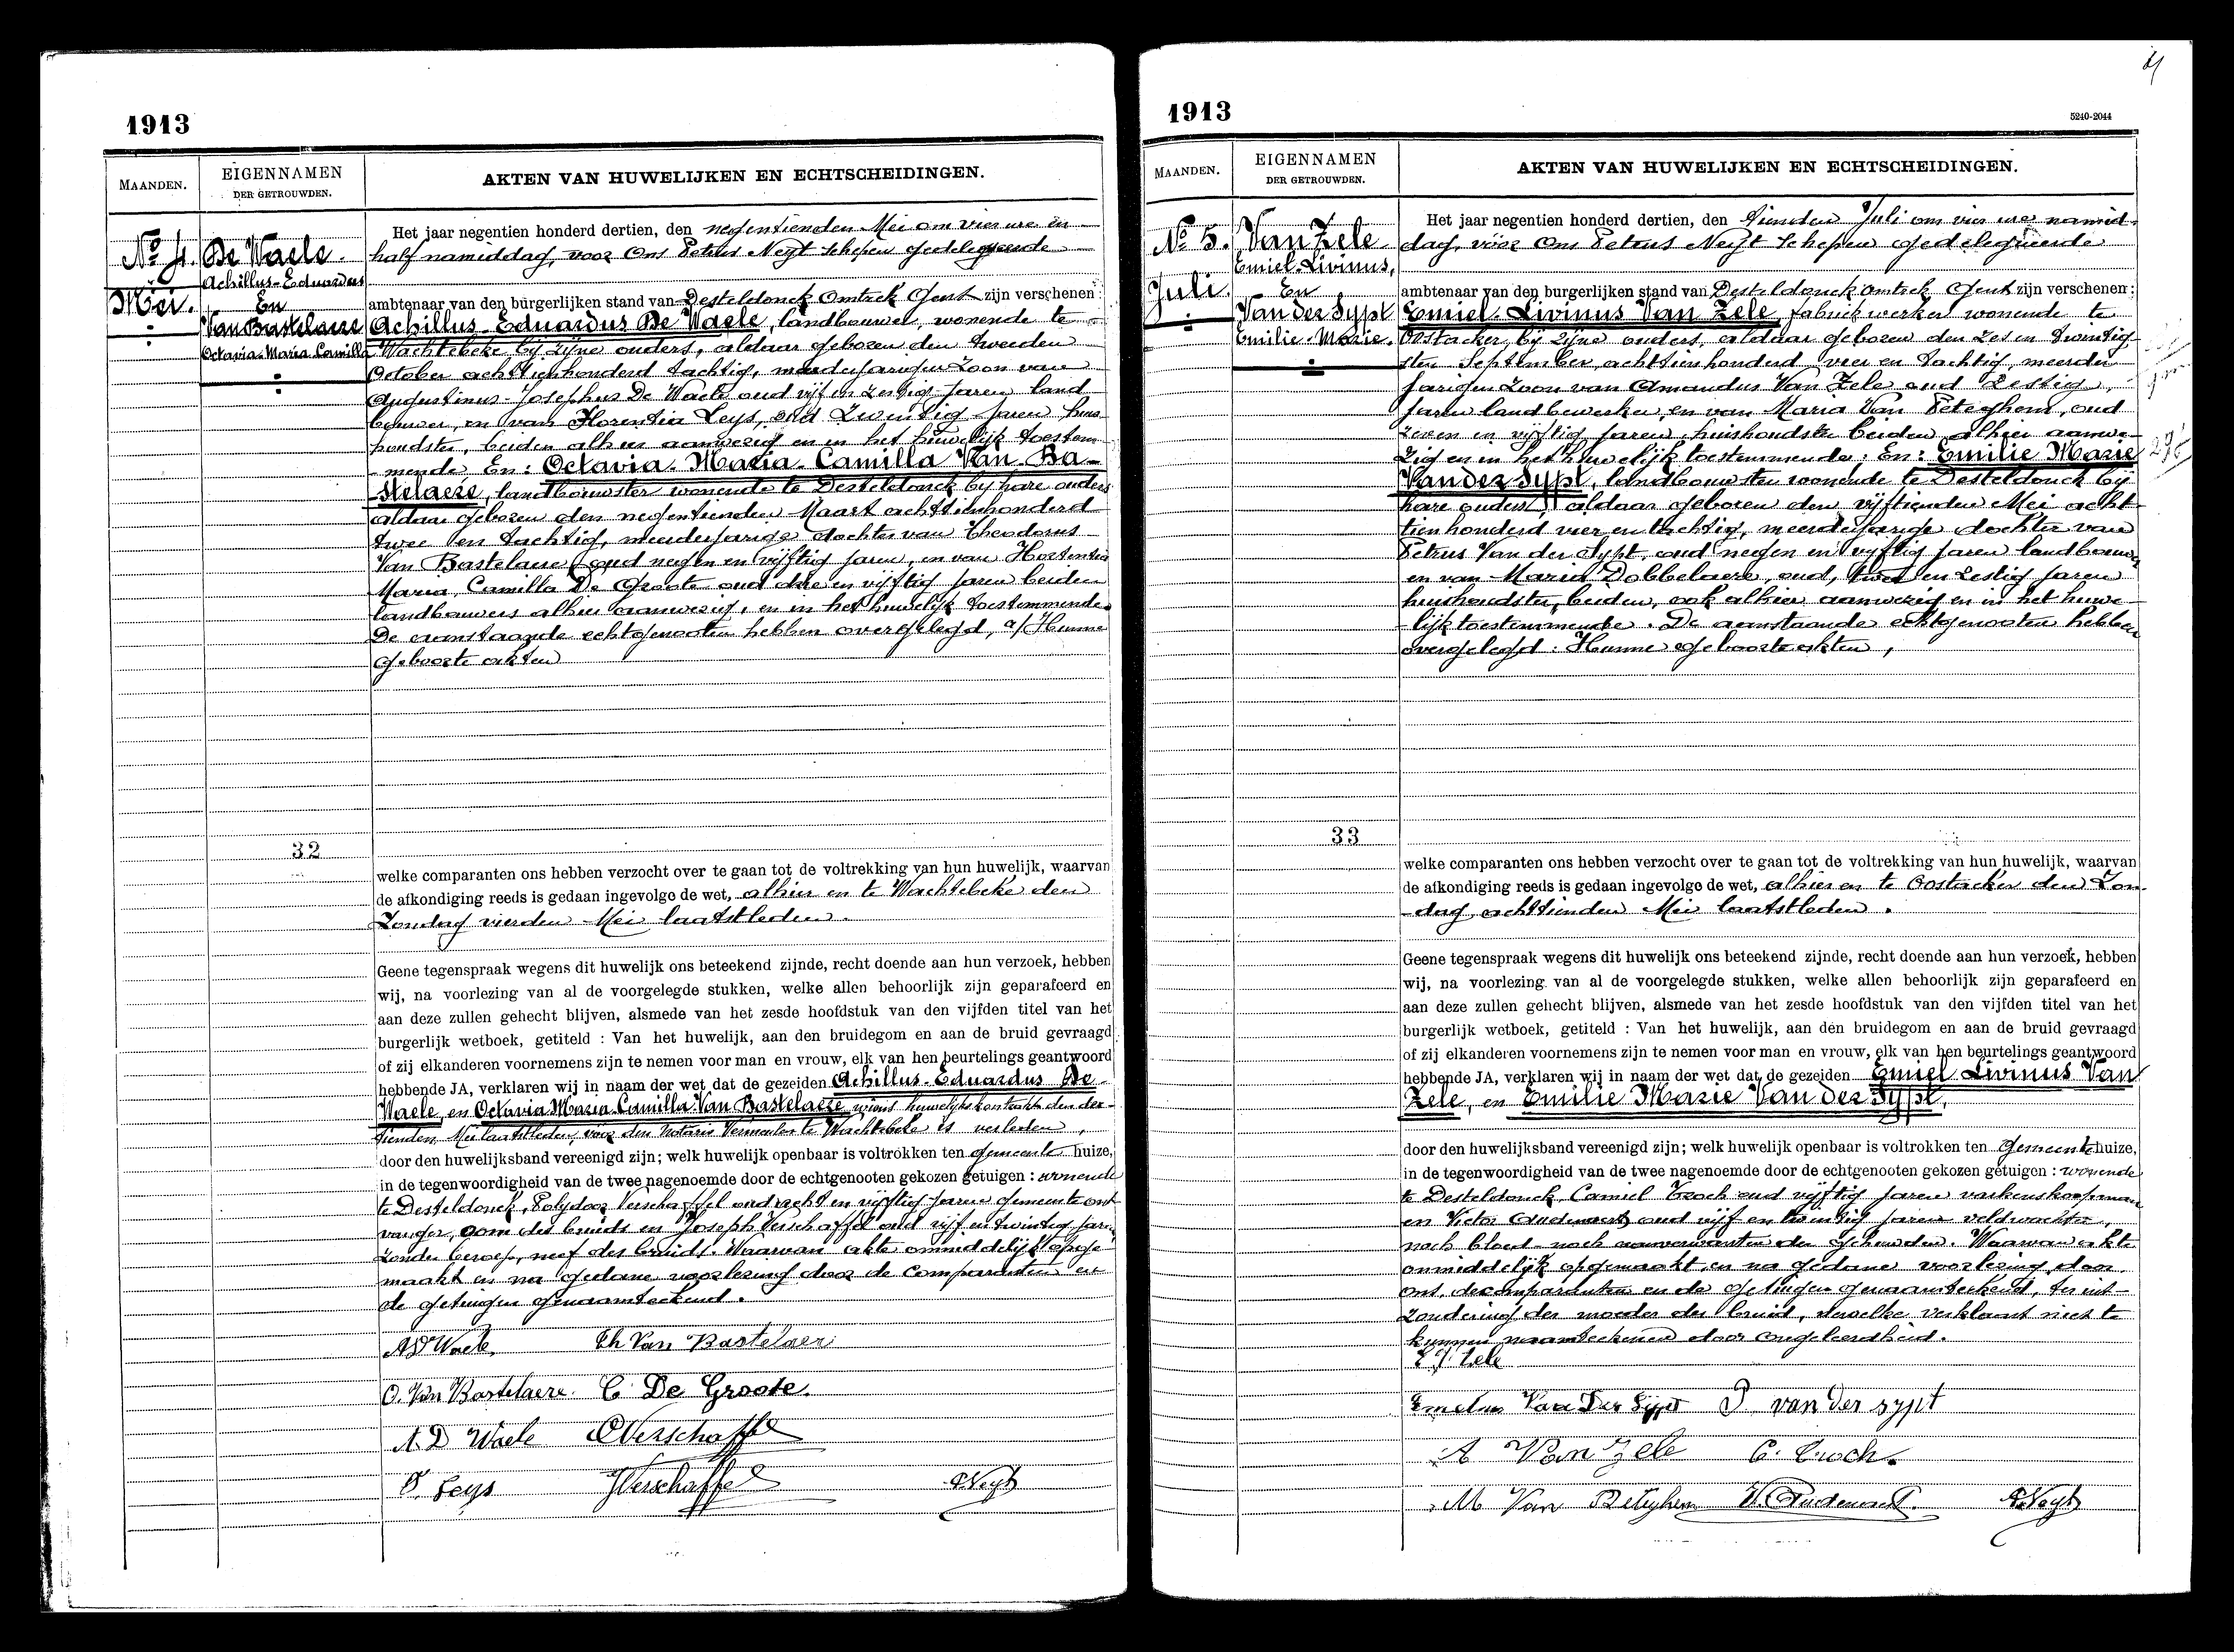 1913
MAANDEN.
EIGENNAMEN
DER GETROUWDEN.
AKTEN VAN HUWELIJKEN EN ECHTSCHEIDINGEN.
No 4.
Mei.
De Waele.
Achillus-Eduardus
En
Van Bastelaere
Octavia-Maria Camilla
32
Het jaar negentien honderd dertien, den negentienden Mei om vier ure en
half namiddag, voor Ons Petrus Neyt Schepen gedelegueerde
ambtenaar van den burgerlijken stand van Desteldonck Omtrek Gent zijn verschenen:
Achillus-Eduardus De Waele, landbouwer, wonende te
Wachtebeke bij zijne ouders, aldaar geboren den tweeden
October achttienhonderd tachtig, meerderjarigen Zoon van
Augustinus-Josephus De Waele oud vijf en zestig Jaren land
bouwer, en van Florentia Leys, oud Jaren huis
houdster, beiden alhier aanwezig en in het huwelijk toestem
mende En: Octavia-Maria-Camilla Van Ba-
stelaere, landbouwster wonende te Desteldonck bij hare ouders
aldaar geboren den negentienden Maart achttienhonderd
twee en tachtig, meerderjarige dochter van Theodorus
Van Bastelaere oud negen en vijftig Jaren, en van Hortentia
Maria, Camilla De Groote oud drie en vijftig Jaren beiden
landbouwers alhier aanwezig, en in het huwelijk toestemmende.
De aanstaande echtgenooten hebben overgelegd, a/ Hunne
geboorte akten
welke comparanten ons hebben verzocht over te gaan tot de voltrekking van hun huwelijk, waarvan
de afkondiging reeds is gedaan ingevolge de wet, alhier en te Wachtebeke den
Zondag vierden Mei laatstleden.
Geene tegenspraak wegens dit huwelijk ons beteekend zijnde, recht doende aan hun verzoek, hebben
wij, na voorlezing van al de voorgelegde stukken, welke allen behoorlijk zijn geparafeerd en
aan deze zullen gehecht blijven, alsmede van het zesde hoofdstuk van den vijfden titel van het
burgerlijk wetboek, getiteld : Van het huwelijk, aan den bruidegom en aan de bruid gevraagd
of zij elkanderen voornemens zijn te nemen voor man en vrouw, elk van hen beurtelings geantwoord
hebbende JA, verklaren wij in naam der wet dat de gezeiden Achillus-Eduardus De
Waele, en Octavia Maria Camilla Van Bastelaere, wiens huwelijkskontrakt den der-
tienden Mei laatstleden, voor den Notaris Vermeulen te Wachtebeke is verleden,
door den huwelijksband vereenigd zijn; welk huwelijk openbaar is voltrokken ten gemeente huize,
in de tegenwoordigheid van de twee nagenoemde door de echtgenooten gekozen getuigen : wonende
te Desteldonck, Polydoor Verschaffel oud acht en vijftig Jaren gemeente ont
vanger, oom der bruids en Joseph Verschaffel oud vijf en twintig Jaren
zonder beroep, neef der bruids. Waarvan akte onmiddelijk opge-
maakt en na gedane voorlezing door de Comparanten en
de getuigen genaamteekend.
A D Waele Th Van Bastelaer
O. Van Bastelaere. C. De Groote.
A. D Waele Verschaffel
F. Leys JVerschaffel PNeyt
1913
5240-2044
MAANDEN.
EIGENNAMEN
DER GETROUWDEN.
AKTEN VAN HUWELIJKEN EN ECHTSCHEIDINGEN.
No 5.
Juli.
Van Zele
Emiel-Livinus,
En
Van der Sypt
Emilie-Marie.
33
Het jaar negentien honderd dertien, den tienden Juli om vier ure namid-
dag, voor Ons Petrus Neyt Schepen gedelegueerde
ambtenaar van den burgerlijken stand van Desteldonck omtrek Gent zijn verschenen:
Emiel-Livinus Van Zele, fabriekwerker wonende te
Oostacker, bij zijne ouders, aldaar geboren den zes en twintig-
sten September achttienhonderd vier en tachtig, meerder
jarigen Zoon van Amandus Van Zele oud zestig,
Jaren landbewerker, en van Maria Van Peteghem, oud
zeven en vijftig Jaren, huishoudster beiden alhier aanwe-
zig en in het huwelijk toestemmende; En: Emilie Marie
Van der Sypt, landbouwster wonende te Desteldonck bij
hare ouders, aldaar geboren den vijftienden Mei acht-
tienhonderd vier en tachtig, meerderjarige dochter van
Petrus Van der Sypt, oud negen en vijftig Jaren landbouwer
en van Maria Dobbelaere, oud, twee en zestig Jaren
huishoudster, beiden, ook alhier aanwezig en in het huwe-
lijk toestemmende. De aanstaande echtgenooten hebben
overgelegd: Hunne geboorteakten,
welke comparanten ons hebben verzocht over te gaan tot de voltrekking van hun huwelijk, waarvan
de afkondiging reeds is gedaan ingevolge de wet, alhier en te Oostacker den Zon-
dag, achttienden Mei laatstleden.
Geene tegenspraak wegens dit huwelijk ons beteekend zijnde, recht doende aan hun verzoek, hebben
wij, na voorlezing van al de voorgelegde stukken, welke allen behoorlijk zijn geparafeerd en
aan deze zullen gehecht blijven, alsmede van het zesde hoofdstuk van den vijfden titel van het
burgerlijk wetboek, getiteld : Van het huwelijk, aan den bruidegom en aan de bruid gevraagd
of zij elkanderen voornemens zijn te nemen voor man en vrouw, elk van hen beurtelings geantwoord
hebbende JA, verklaren wij in naam der wet dat de gezeiden Emiel-Livinus Van
Zele, en Emilie Marie Van der Sypt,
door den huwelijksband vereenigd zijn; welk huwelijk openbaar is voltrokken ten Gemeentehuize,
in de tegenwoordigheid van de twee nagenoemde door de echtgenooten gekozen getuigen : wonende
te Desteldonck, Camiel Croch oud vijftig Jaren varkenskoopman
en Victor Oudenaert oud vijf en twintig Jaren veldwachter,
noch bloed- noch aanverwanten der gehuwden. Waarvan akte
onmiddelijk opgemaakt, en na gedane voorlezing door
ons, de comparanten en de getuigen genaamteekend, ter uit-
zondering der moeder der bruid, dewelke verklaart niet te
kunnen naamteekenen door ongeleerdheid.
Zele
Van Der Sypt P van der sypt
A Van Zele C. Croch.
M Van Peteghem V. Oudenaert. PNeyt